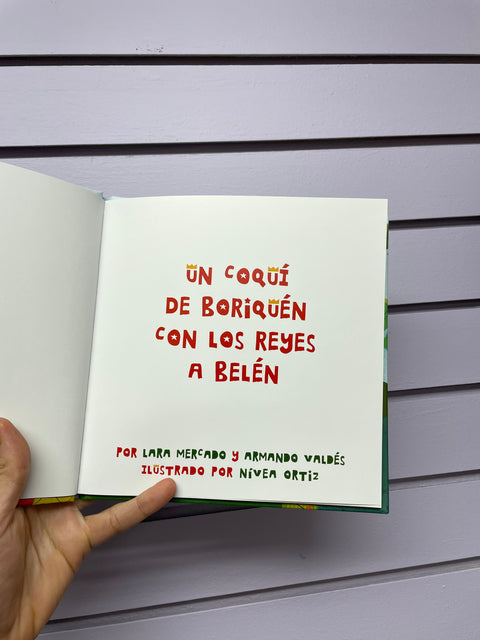 UN COQUÍ
DE BORIQUÉN
CON LOS REYES
A BELÉN
POR LARA MERCADO Y ARMANDO VALDÉS
ILUSTRADO POR NÍVEA ORTIZ